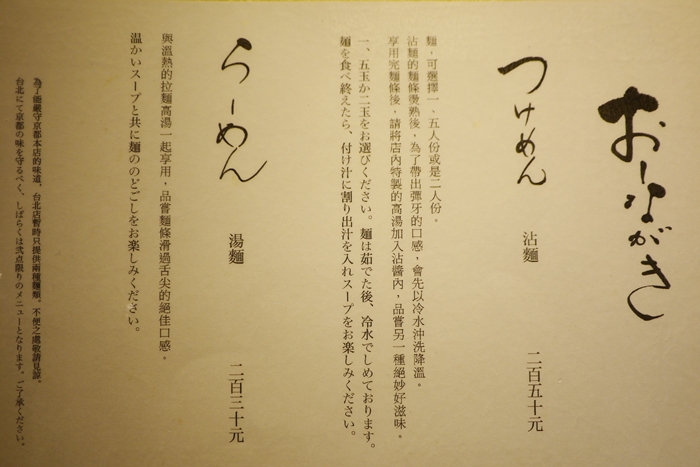 おしながき
つけめん 沾麵 二百五十元
麵，可選擇一．五人份或是二人份。
沾麵的麵條燙熟後，為了帶出彈牙的口感，會先以冷水沖洗降溫。
享用完麵條後，請將店內特製的高湯加入沾醬內，品嘗另一種絕妙好滋味。
一、五玉か二玉をお選びください。麺は茹でた後、冷水でしめております。
麺を食べ終えたら、付け汁に割り出汁を入れスープをお楽しみください。
らーめん 湯麵 二百三十元
與溫熱的拉麵高湯一起享用，品嘗麵條滑過舌尖的絕佳口感。
温かいスープと共に麺ののどごしをお楽しみください。
為了能嚴守京都本店的味道，台北店暫時只提供兩種麵類，不便之處敬請見諒。
台北にて京都の味を守るべく、しばらくは弐点限りのメニューとなります。ご了承ください。